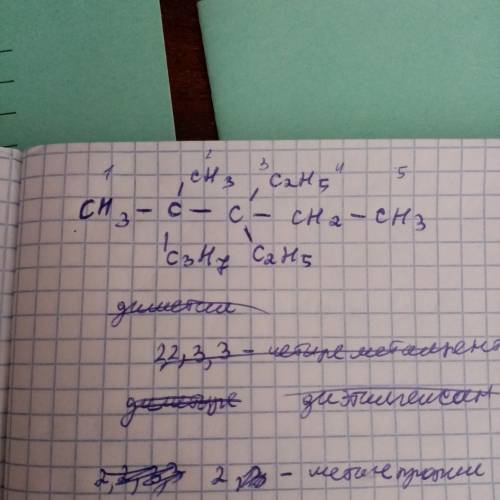 1 2 CH3 3 C2H5 4 5
CH3 - C - C - CH2 - CH3
C3H7 C2H5
диметил
2,2,3,3 - четыре метилпент
диэтилгексан
2 - метил пропил